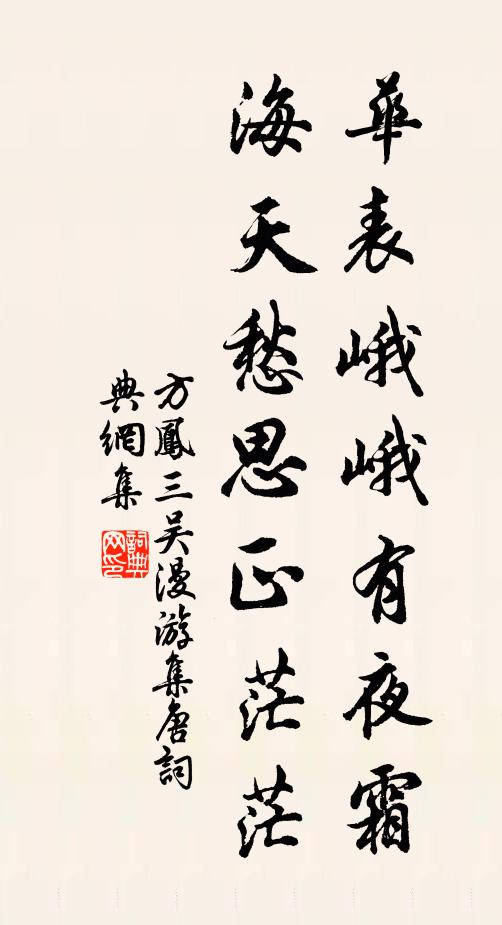 華表峨峨有夜霜
海天愁思正茫茫
方鳳三吴漫游集唐詞
典網集
詞典
网印